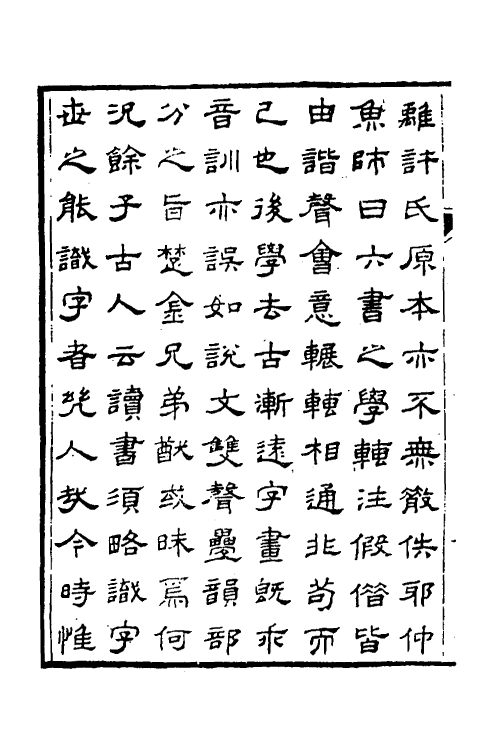 雖許氏原本亦不無散佚邪仲
魚師曰六書之學轉注假借皆
由諧聲會意輾轉相通非苟而
已也後學去古漸遠字畫旣乖
音訓亦誤如說文雙聲疊韻部
分之旨楚金兄弟猷或昧焉何
況餘子古人云讀書須略識字
世之能識字者幾人哉今時惟